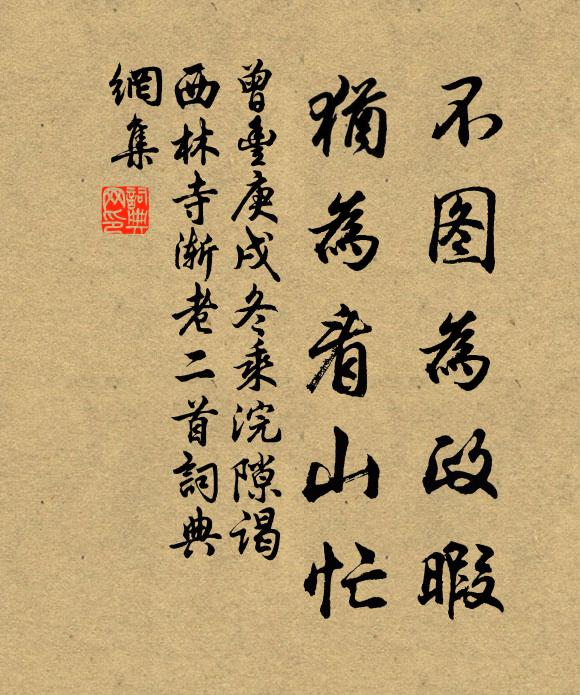 不图為政暇
猶為看山忙
曾豊庚戌冬乘浣隙谒
西林寺漸老二首詞典
網集
詞典
网印